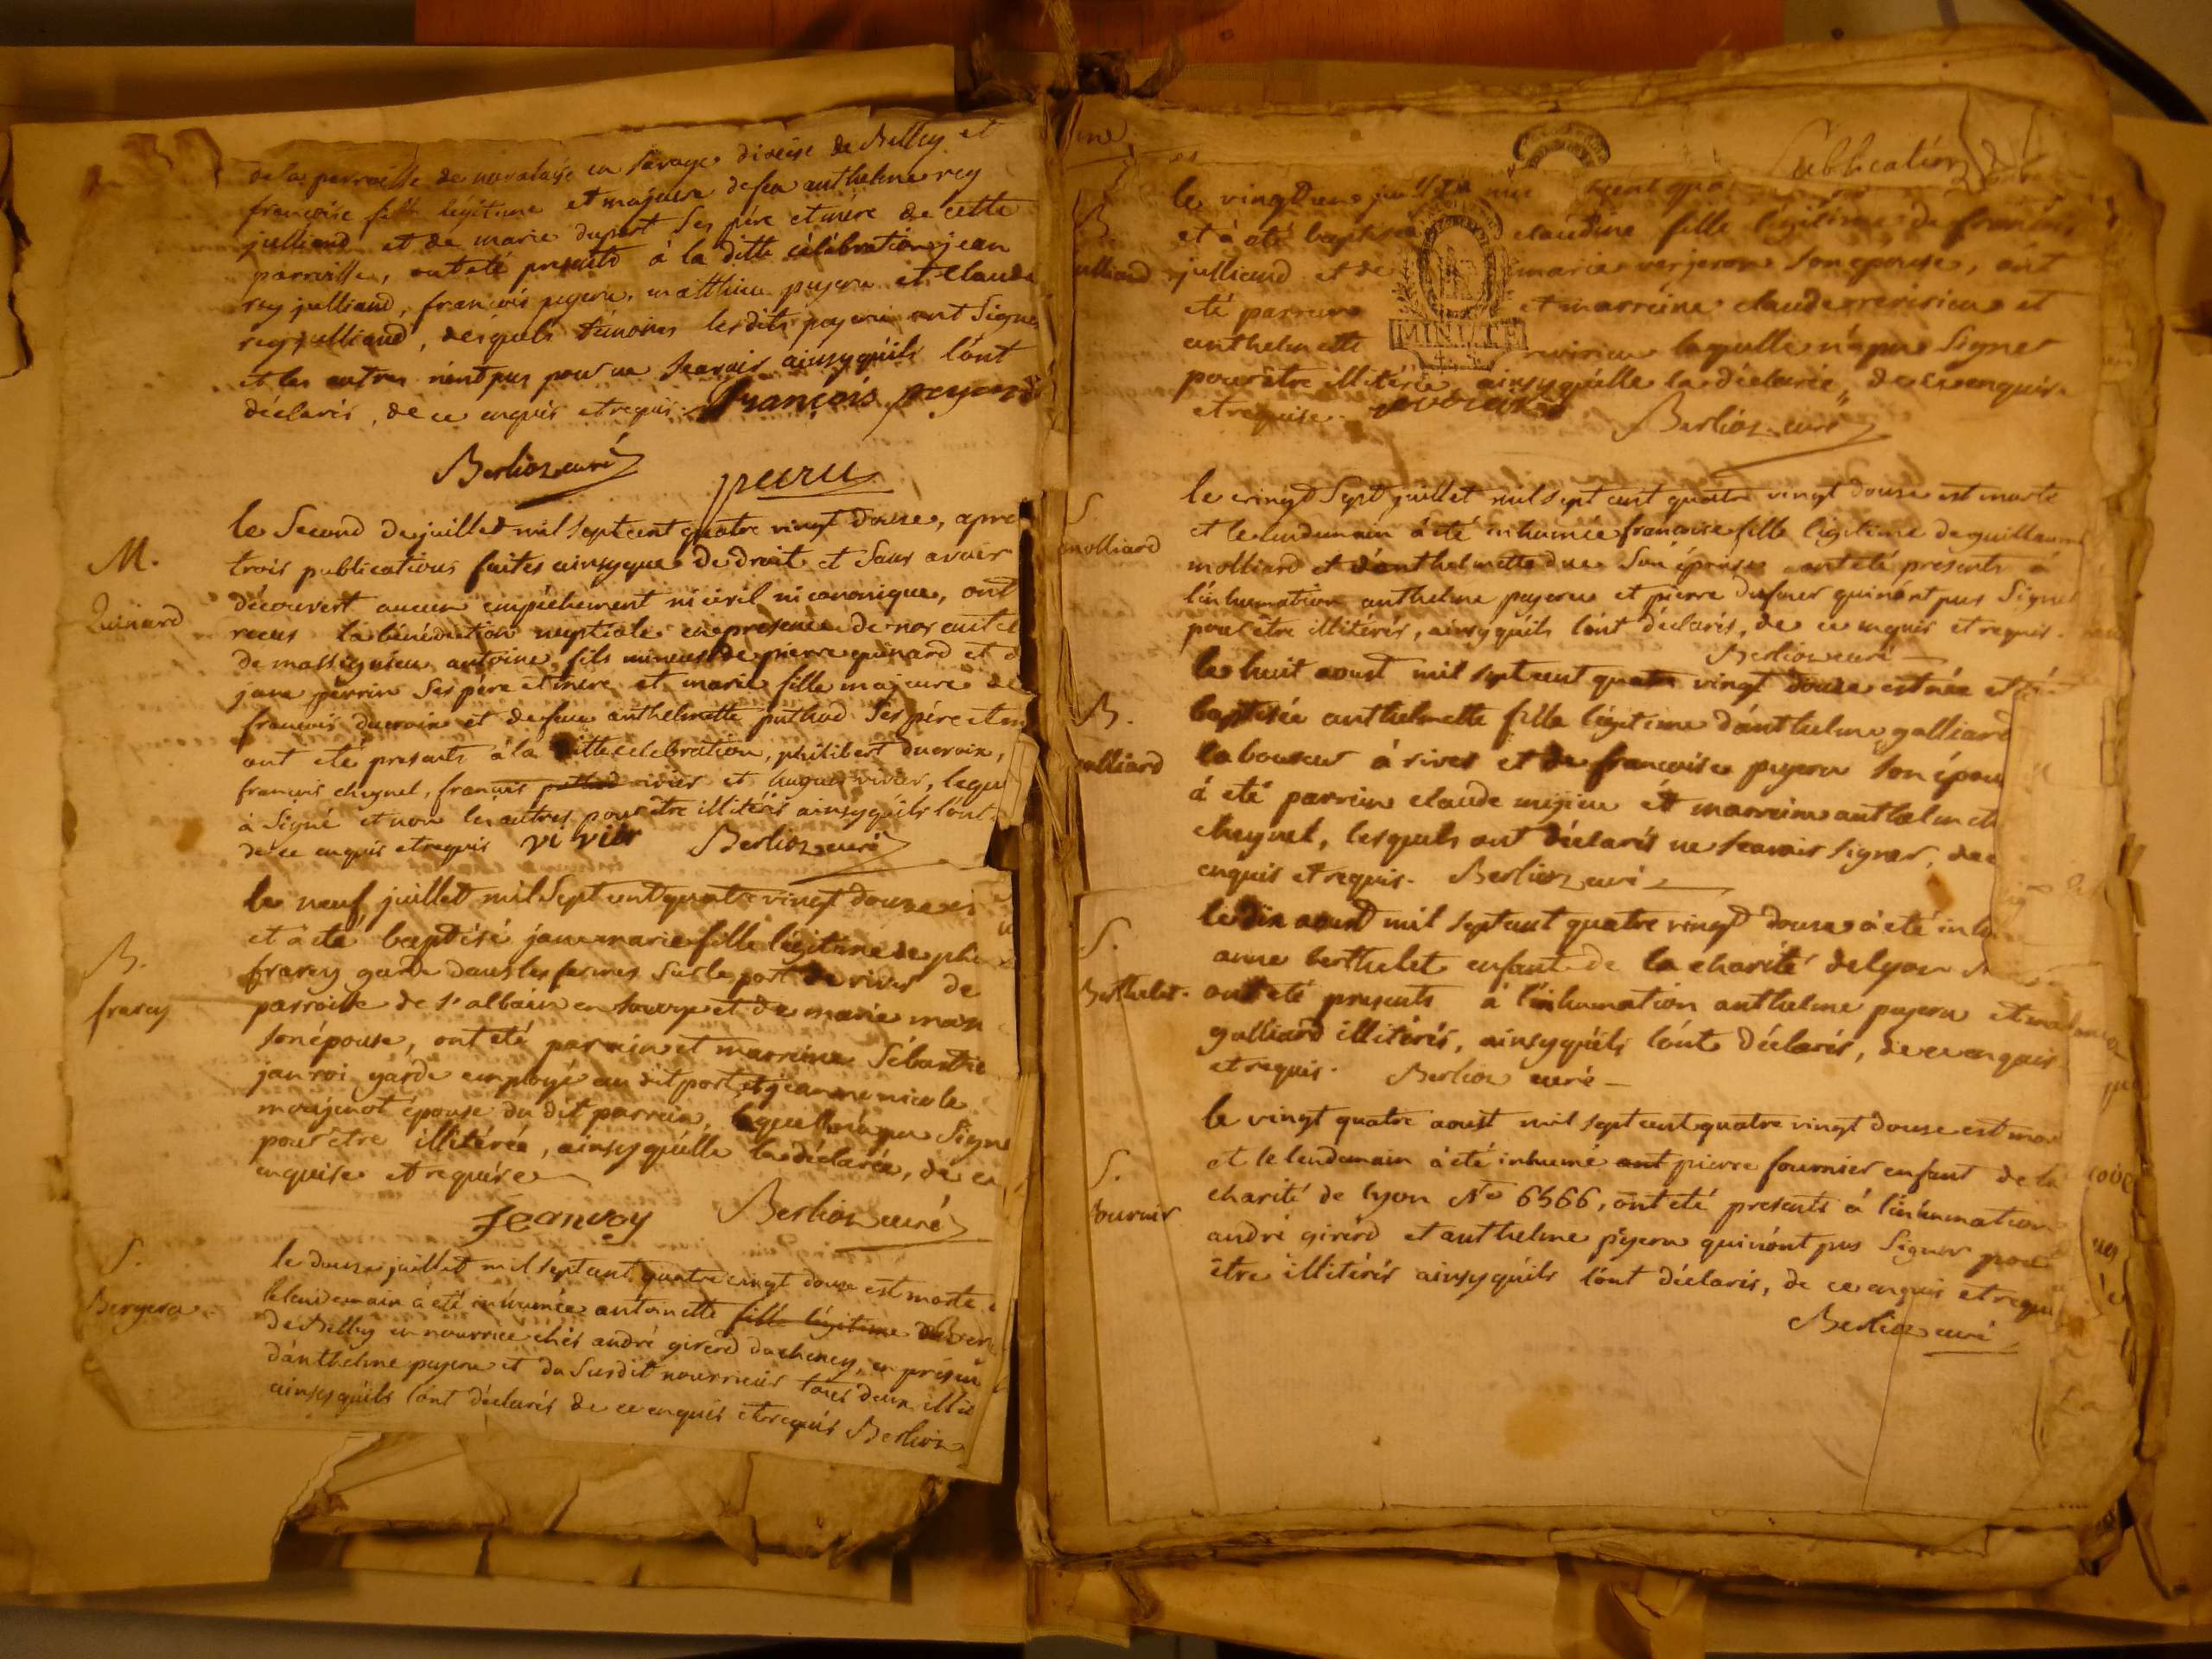 de la parroisse de novalaise en Savoye diocèse de Belley et
françoise fille légitime et majeure de feu anthelme rey
julliand et de marie dupont ses père et mère de cette
parroisse, ont eté presents à la ditte célébration jean
rey julliand, françois pegeru, matthieu pugeru et Claude
rey julliand, desquels témoins lesdits pugeru ont Signés
et les autres n'ont pas pour ne Scavoir ainsy qu'ils l'ont
déclarés, de ce enquis et requis. François
Berlioz curé
M.
Quinard
le Second de juillet mil sept cent quatre vingt douse, apre
trois publications faites ainsy que de droit et Sans avoir
découvert aucun empéchement ni civil ni canonique, ont
receus la bénédiction nuptiale en présence de nos
de massignieu antoine, fils mineur de pierre quinard et d
jane perrin Ses père et mère et marie fille majeure de
francois ducroix et de feue anthelmette puthod Ses père et m
ont eté presents à la ditte celebration, philibert ducroix,
francois cheynel, francois puthod vivier et hugues vivier, leque
à Signé et non les autres pour être illitérés ainsy qu'ils l'ont
de ce enquis et requis vi vier Berlioz curé
B.
frarcy
le neuf juillet mil Sept cent quatre vingt douse es
et à eté baptisé jane marie fille légitime de phi
frarcy garde dans les fermes Sur le port de rives de
parroisse de St albain en Savoye et de marie man
son épouse, ont été parrain et marreine Sébastie
janroi garde employé au dit port et jeanne nicole
moujenot épouse du dit parrain, laquelle n'a pu Signe
pour être illitérée, ainsy qu'elle la déclarée, de ce
enquise et requise
Jeanvoy Berlioz curé
S.
Bergera
le douse juillet mil sept cent quatre vingt douse est morte e
le lendemain à eté inhumée antoinette fille légitime de Ber
de Belley en nourrice chés andré girerd du cheney, en présen
d'anthelme pugeru et du Susdit nourricier tous deux illit
ainsy qu'ils l'ont déclarés de ce enquis et requis Berlioz
Publication
B
ulliand
le vingt
et à eté baptisée claudine fille légitime de francois
julliand et de marie verjeron Son épouse, ont
eté parrain et marreine claude revirieu et
anthelmette revirieu laquelle n'a pu Signer
pour être illitérée, ainsy qu'elle la déclarée, de ce enquise
et requise. Berlioz curé
S
molliard
le vingt Sept juillet mil sept cent quatre vingt douse est morte
et le lendemain à été inhumée francoise fille légitime de guillaume
molliard et d'anthelmette due Son épouse ont eté presents à
l'inhumation anthelme pugeru et pierre dufour qui n'ont pas Signé
pour être illitérés, ainsy qu'ils l'ont déclarés, de ce enquis et requis.
Berlioz curé
B.
galliard
le huit aoust mil sept cent quatre vingt douse est née et
baptisée anthelmette fille légitime d'anthelme galliard
laboureur à rives et de francoise pugeru son épou
à eté parrein claude mijieu et marreine anthelmet
cheynel, lesquels ont déclarés ne Scavoir Signer, de
enquis et requis. Berlioz curé
S.
Berthelet.
le dix aoust mil sept cent quatre vingt douse à eté inh
anne berthelet enfant de la charité de lyon
ont eté presents à l'inhumation anthelme pugeru et
galliard illitérés, ainsy qu'ils l'ont déclarés, de ce enquis
et requis. Berlioz curé
S.
fournier
le vingt quatre aoust mil sept cent quatre vingt douse est mor
et le lendemain à été inhumé ant pierre fournier enfant de la
charité de lyon No 6566, ont eté presents à l'inhumation
andré girerd et anthelme pugeru qui n'ont pas Signer pour
être illitérés ainsy qu'ils l'ont déclarés, de ce enquis et requi
Berlioz curé